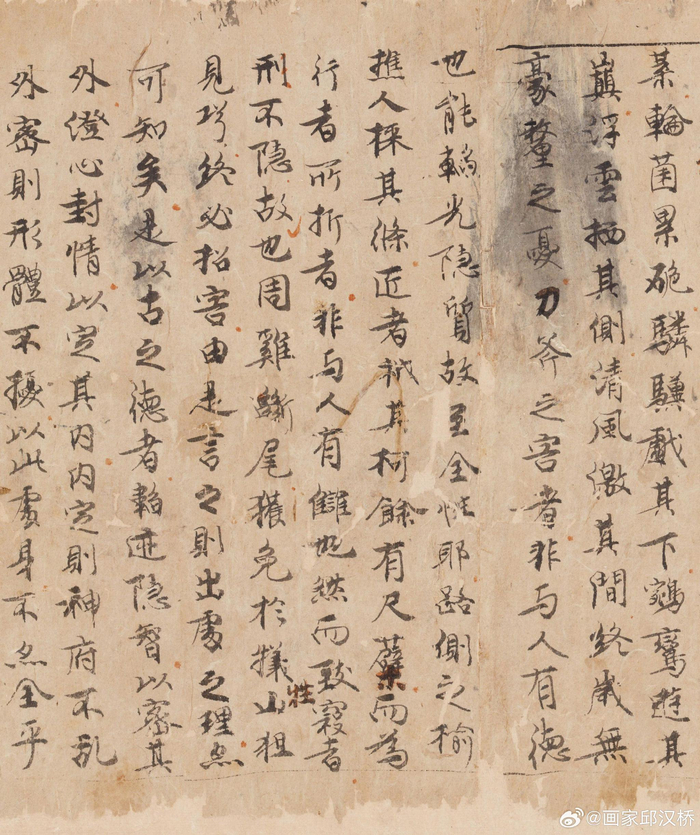 蓁輪菌累硊驎驥戲其下鵷鸞遊其
巔浮雲栖其側清風激其間終歲無
豪釐之憂刀斧之害者非与人有德
也能韜光隱質故至全性耶路側之榆
樵人採其條匠者其柯餘有尺蘖而為
行者所折者非与人有讎也然而致寇者
刑不隱故也周雞斷尾獲免於犧牲山狙
見巧終必招害由是言之則出處之理亦
可知矣是以古之德者韜迹隱智以密其
外澄心封情以定其内内定則神府不亂
外密則形體不擾以此處身不亦全乎
@画家邱汉桥